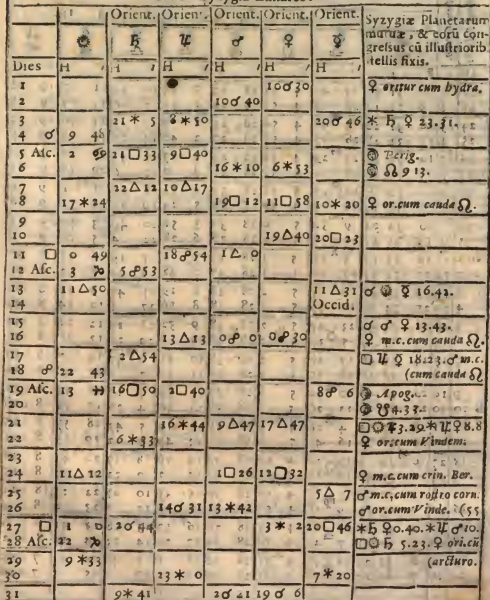 Orient. Orien. Orient. Orient. Orient.
Syzygiæ Planetarum
mutuæ, & eorū con-
gressus cū illustriorib.
stellis fixis.
☉ ♄ ♃ ♂ ♀ ☿
Dies H H H H H H
1 10☌30 ♀ oritur cum hydra.
2 10☌40
3 21✶5 8✶50 20☌46 ✶ ♄ ♀ 23.31.
4 ☌ 9 48
5 Asc. 2 21□33 9□40 Perig.
6 16✶10 6✶53 ☊ 9 13.
7 22△12 10△17
8 17✶24 19□12 11□58 10✶20 ♀ or.cum cauda ♌.
9
10 19△40 20□23
11 □ 0 49 18☍54 1△0
12 Asc. 3 ♑ 5☍53
13 11△50 11△31 ☌ ☉ ☿ 16.42.
14 Occid.
15 ☌ ♂ ♀ 13.43.
16 13△13 0☍0 0☍30 ♀ m.c.cum cauda ♌.
17 2△54 □ ♃ ☿ 18.23. ♂ m.c.
18 ☍ 22 43 (cum cauda ♌
19 Asc. 13 ♓ 16□50 2□40 8☍6 Apog.
20 ☋ 4.33
21 16✶44 9△47 17△47 □ ☉ 3.29 ✶ ♃ ♀ 8.8
22 6✶33 ♀ or.cum Vindem.
23
24 11△12 1□26 12□32 ♀ m.c.cum crin. Ber.
25 5△7 ♂ m.c.cum rostro corn.
26 14☌31 13✶42 ♂ or.cum Vinde. (55
27 □ 1 20☌44 3✶2 20□46 ✶ ♄ ♀ 0.40. ✶ ♃ ♂ 10.
28 Asc. 22 ♑ □ ☉ ♄ 5.23. ♀ ori.cū
29 9✶33 (arcturo.
30 23✶0 7✶20
31 9✶41 2☌21 19☌6